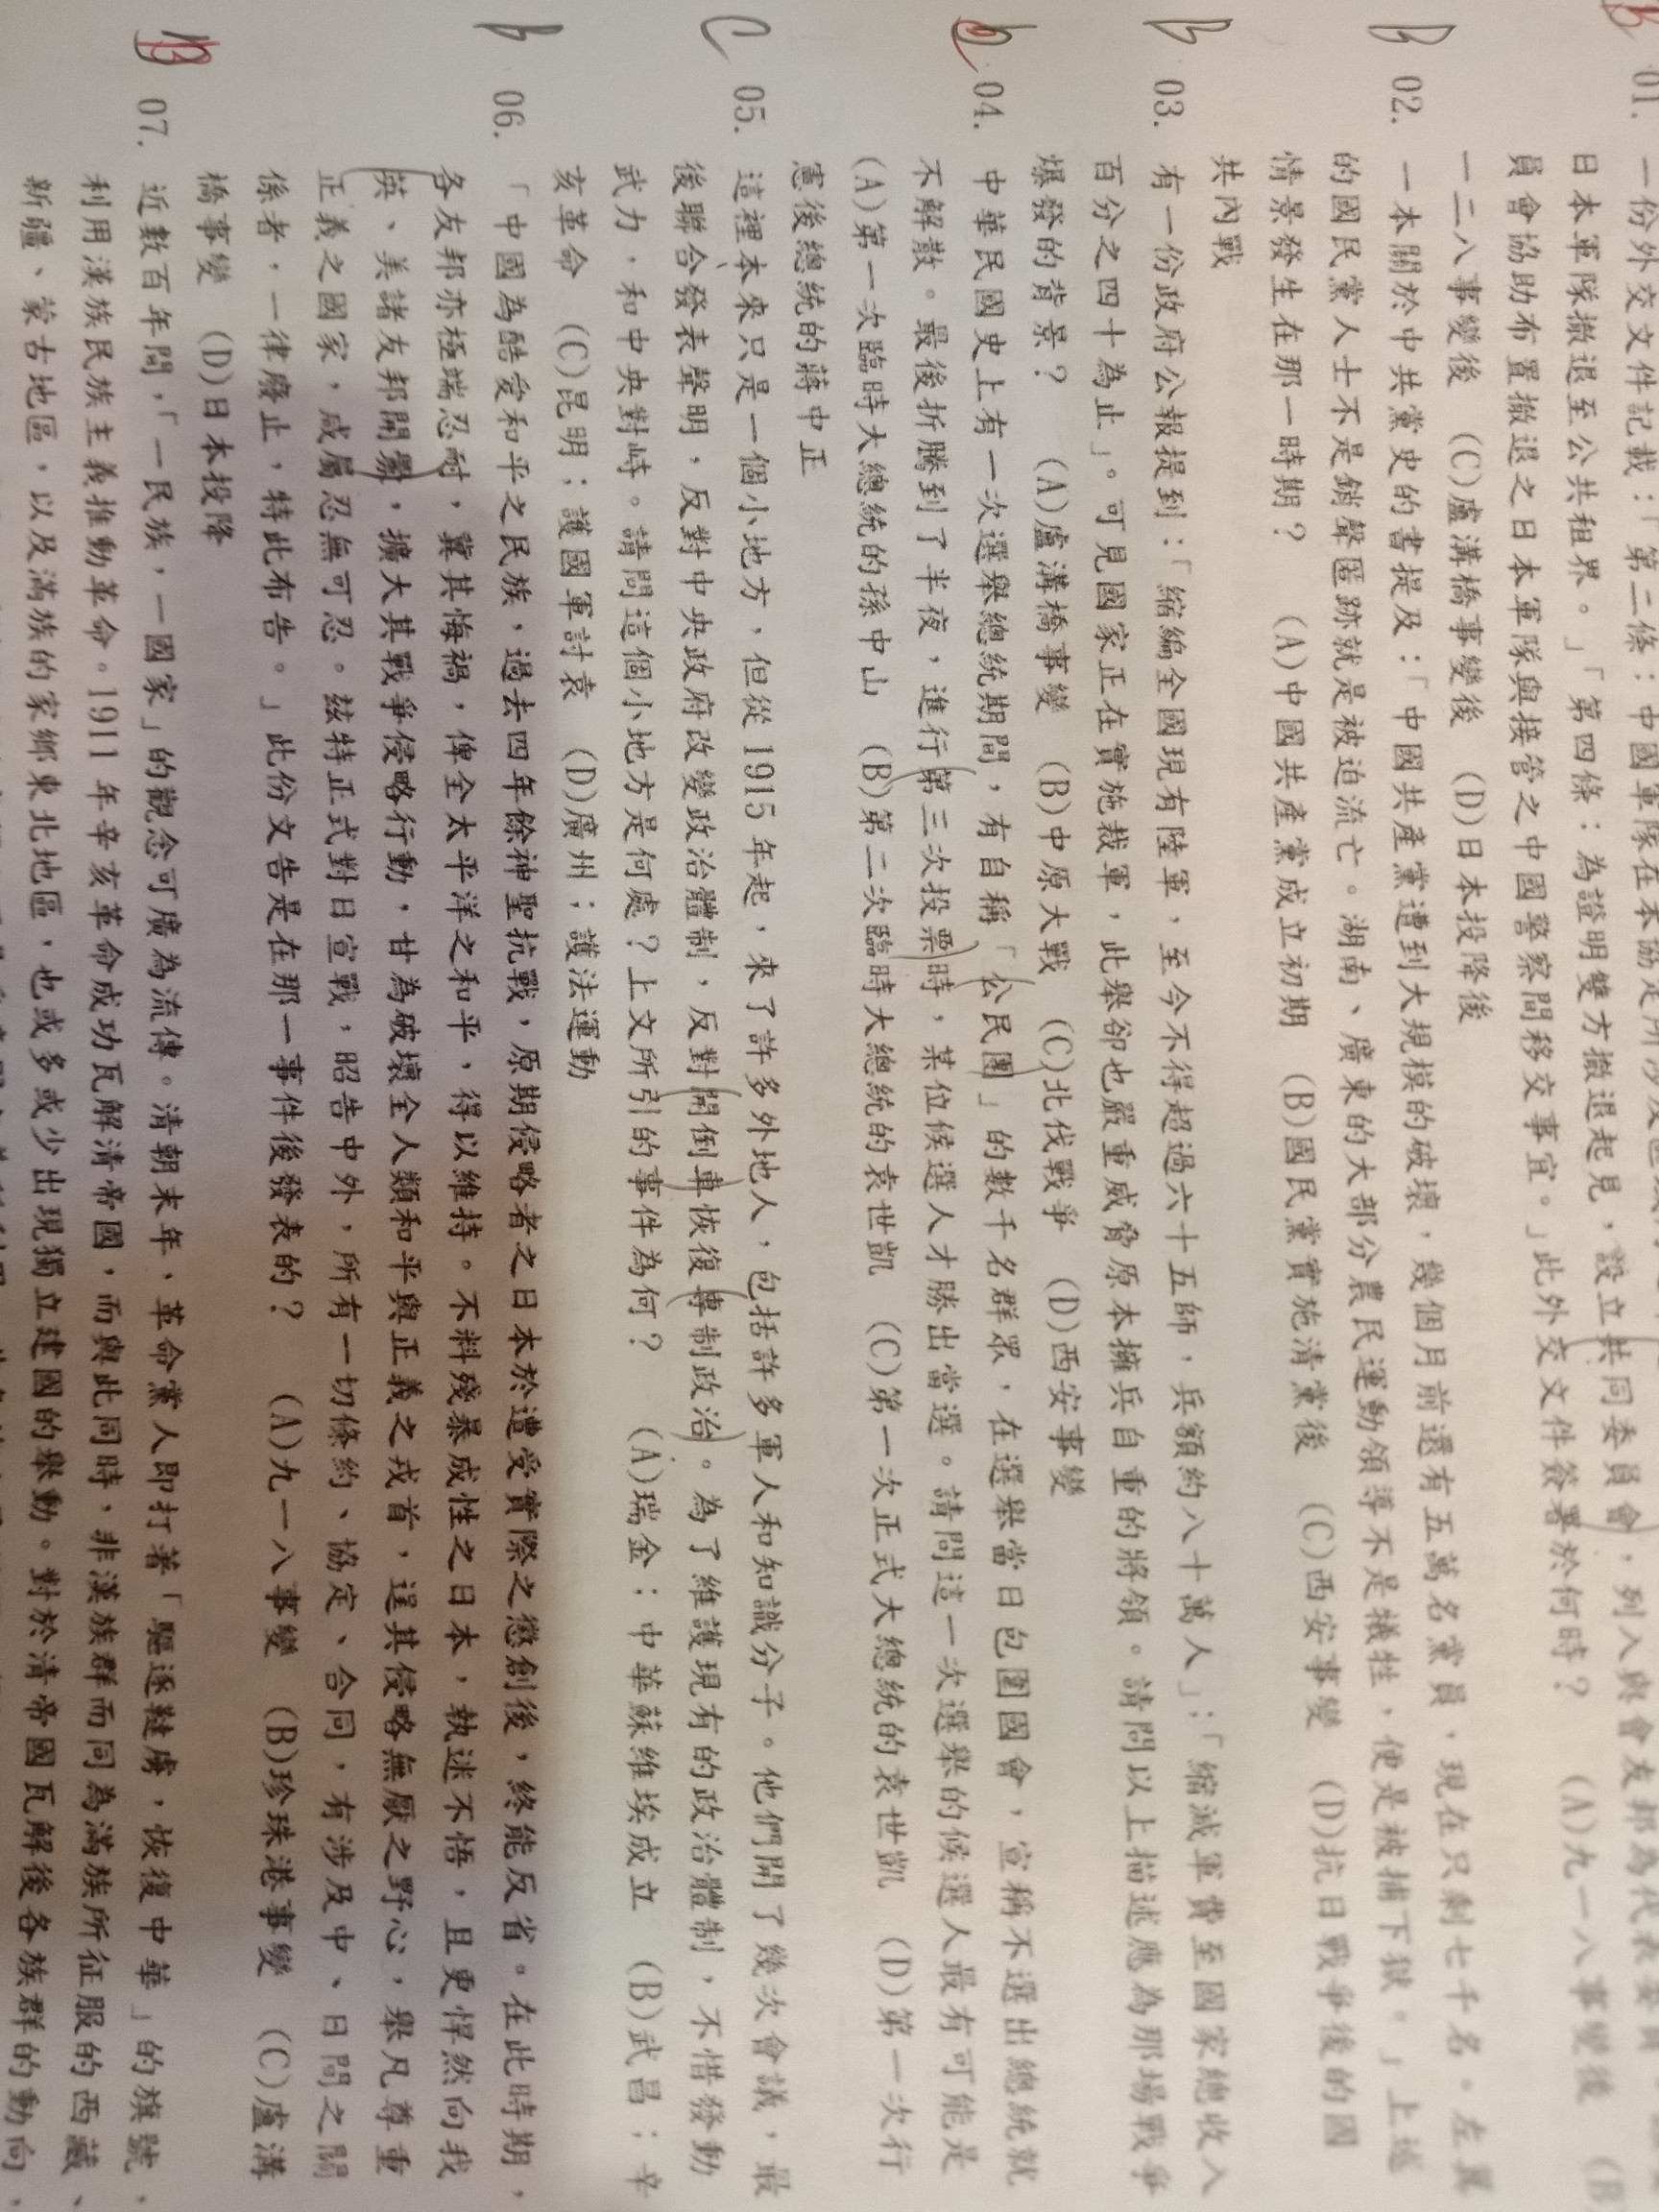 B 01. 一份外交文件記載:「第二條:中國軍隊在本協定所涉及
日本軍隊撤退至公共租界。」「第四條:為證明雙方撤退起見,設立共同委員會,列入與會友邦為代表委員
員會協助布置撤退之日本軍隊與接管之中國警察間移交事宜。」此外交文件簽署於何時? (A)九一八事變後 (B)
一二八事變後 (C)盧溝橋事變後 (D)日本投降後
B 02. 一本關於中共黨史的書提及:「中國共產黨遭到大規模的破壞,幾個月前還有五萬名黨員,現在只剩七千名。左翼
的國民黨人士不是銷聲匿跡就是被迫流亡。湖南、廣東的大部分農民運動領導不是犧牲,便是被捕下獄。」上述
情景發生在那一時期? (A)中國共產黨成立初期 (B)國民黨實施清黨後 (C)西安事變 (D)抗日戰爭後的國
共內戰
B 03. 有一份政府公報提到:「縮編全國現有陸軍,至今不得超過六十五師,兵額約八十萬人」;「縮減軍費至國家總收入
百分之四十為止」。可見國家正在實施裁軍,此舉卻也嚴重威脅原本擁兵自重的將領。請問以上描述應為那場戰爭
爆發的背景? (A)盧溝橋事變 (B)中原大戰 (C)北伐戰爭 (D)西安事變
04. 中華民國史上有一次選舉總統期間,有自稱「公民團」的數千名群眾,在選舉當日包圍國會,宣稱不選出總統就
不解散。最後折騰到了半夜,進行第三次投票時,某位候選人才勝出當選。請問這一次選舉的候選人最有可能是
(A)第一次臨時大總統的孫中山 (B)第二次臨時大總統的袁世凱 (C)第一次正式大總統的袁世凱 (D)第一次行
憲後總統的蔣中正
C 05. 這裡本來只是一個小地方,但從 1915 年起,來了許多外地人,包括許多軍人和知識分子。他們開了幾次會議,最
後聯合發表聲明,反對中央政府改變政治體制,反對開倒車恢復專制政治。為了維護現有的政治體制,不惜發動
武力,和中央對峙。請問這個小地方是何處?上文所引的事件為何? (A)瑞金;中華蘇維埃成立 (B)武昌;辛
亥革命 (C)昆明;護國軍討袁 (D)廣州;護法運動
B 06. 「中國為酷愛和平之民族,過去四年餘神聖抗戰,原期侵略者之日本於遭受實際之懲創後,終能反省。在此時期,
各友邦亦極端忍耐,冀其悔禍,俾全太平洋之和平,得以維持。不料殘暴成性之日本,執迷不悟,且更悍然向我
英、美諸友邦開釁,擴大其戰爭侵略行動,甘為破壞全人類和平與正義之戎首,逞其侵略無厭之野心,舉凡尊重
正義之國家,咸屬忍無可忍。茲特正式對日宣戰,昭告中外,所有一切條約、協定、合同,有涉及中、日間之關
係者,一律廢止,特此布告。」此份文告是在那一事件後發表的? (A)九一八事變 (B)珍珠港事變 (C)盧溝
橋事變 (D)日本投降
07. 近數百年間,「一民族,一國家」的觀念可廣為流傳。清朝末年,革命黨人即打著「驅逐韃虜,恢復中華」的旗號,
利用漢族民族主義推動革命。1911 年辛亥革命成功瓦解清帝國,而與此同時,非漢族群而同為滿族所征服的西藏、
新疆、蒙古地區,以及滿族的家鄉東北地區,也或多或少出現獨立建國的舉動。對於清帝國瓦解後各族群的動向,